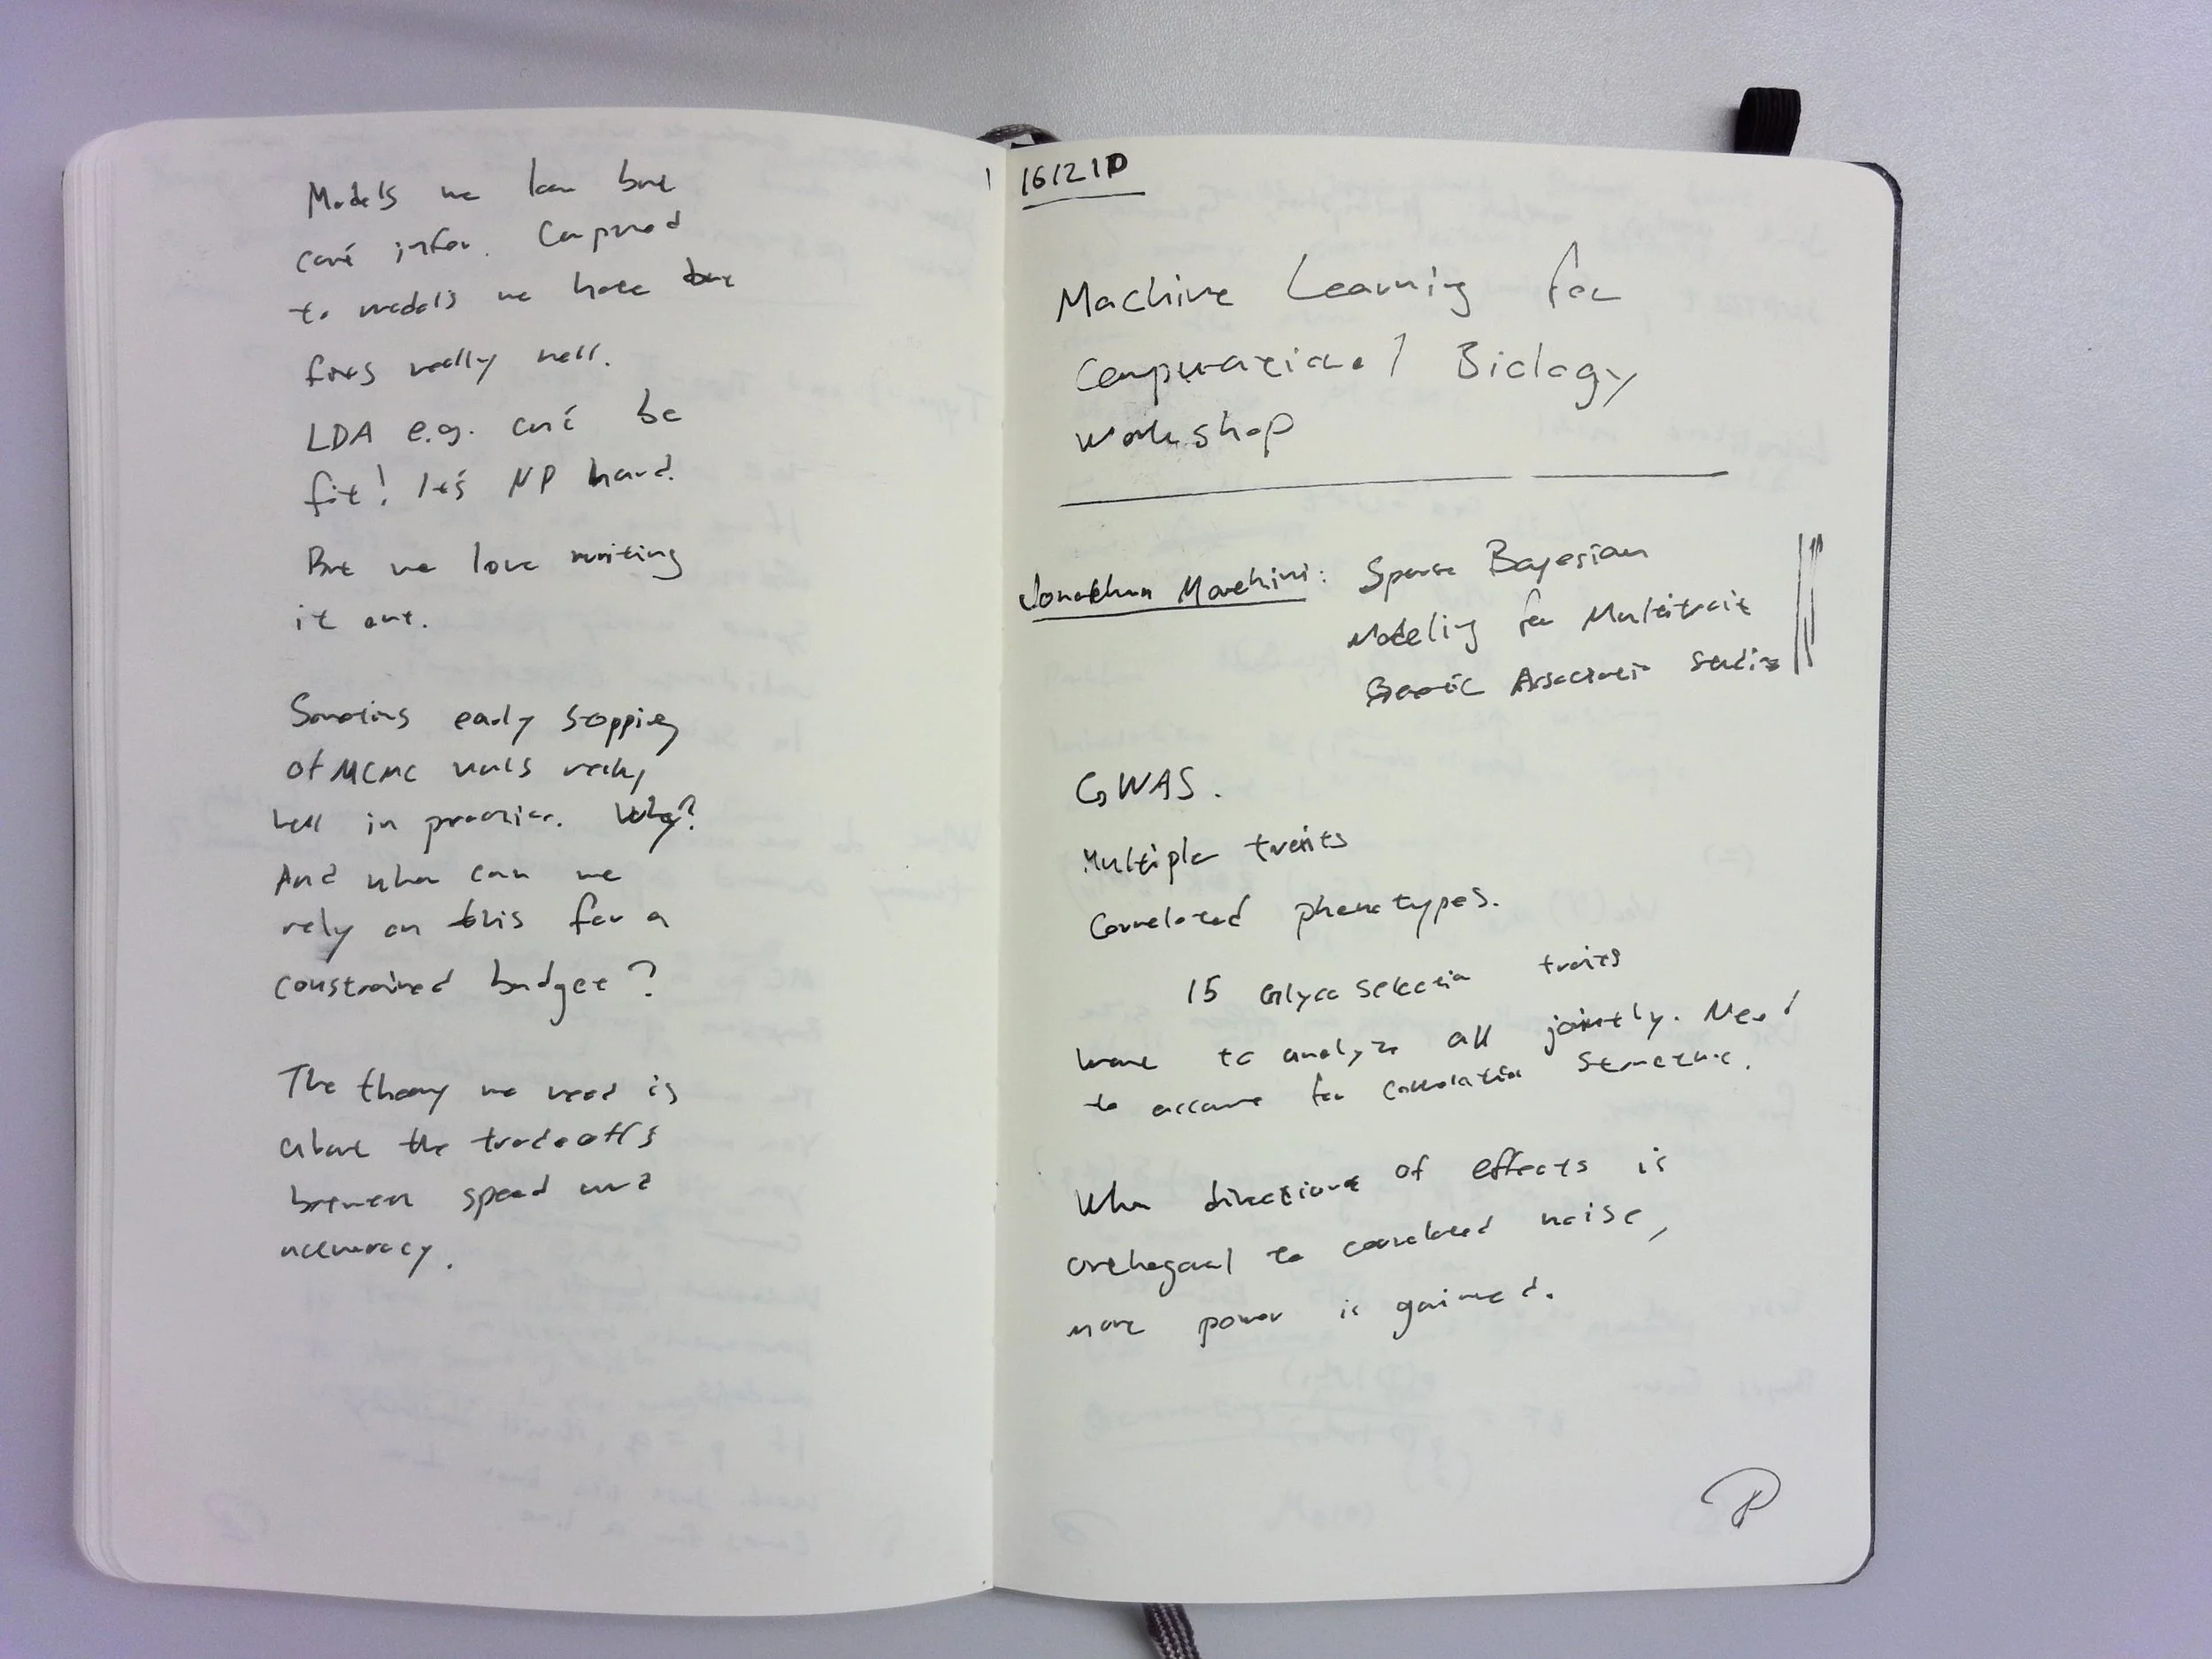 Models we love but
can't infer. Compared
to models we hate but
fits really well.
LDA e.g. can't be
fit! It's NP hard.
But we love writing
it out.
Sometimes early stopping
of MCMC works really
well in practice. Why?
And when can we
rely on this for a
constrained budget?
The theory we need is
about the tradeoffs
between speed and
accuracy.
161210
Machine Learning for
Computational Biology
Workshop
Jonathan Marchini: Sparse Bayesian
Modeling for Multitrait
Genetic Association Studies
GWAS.
Multiple traits
Correlated phenotypes.
15 Glyco traits
Want to analyze all jointly. Need
to account for correlation structure.
When directions of effects is
orthogonal to correlated noise,
more power is gained.